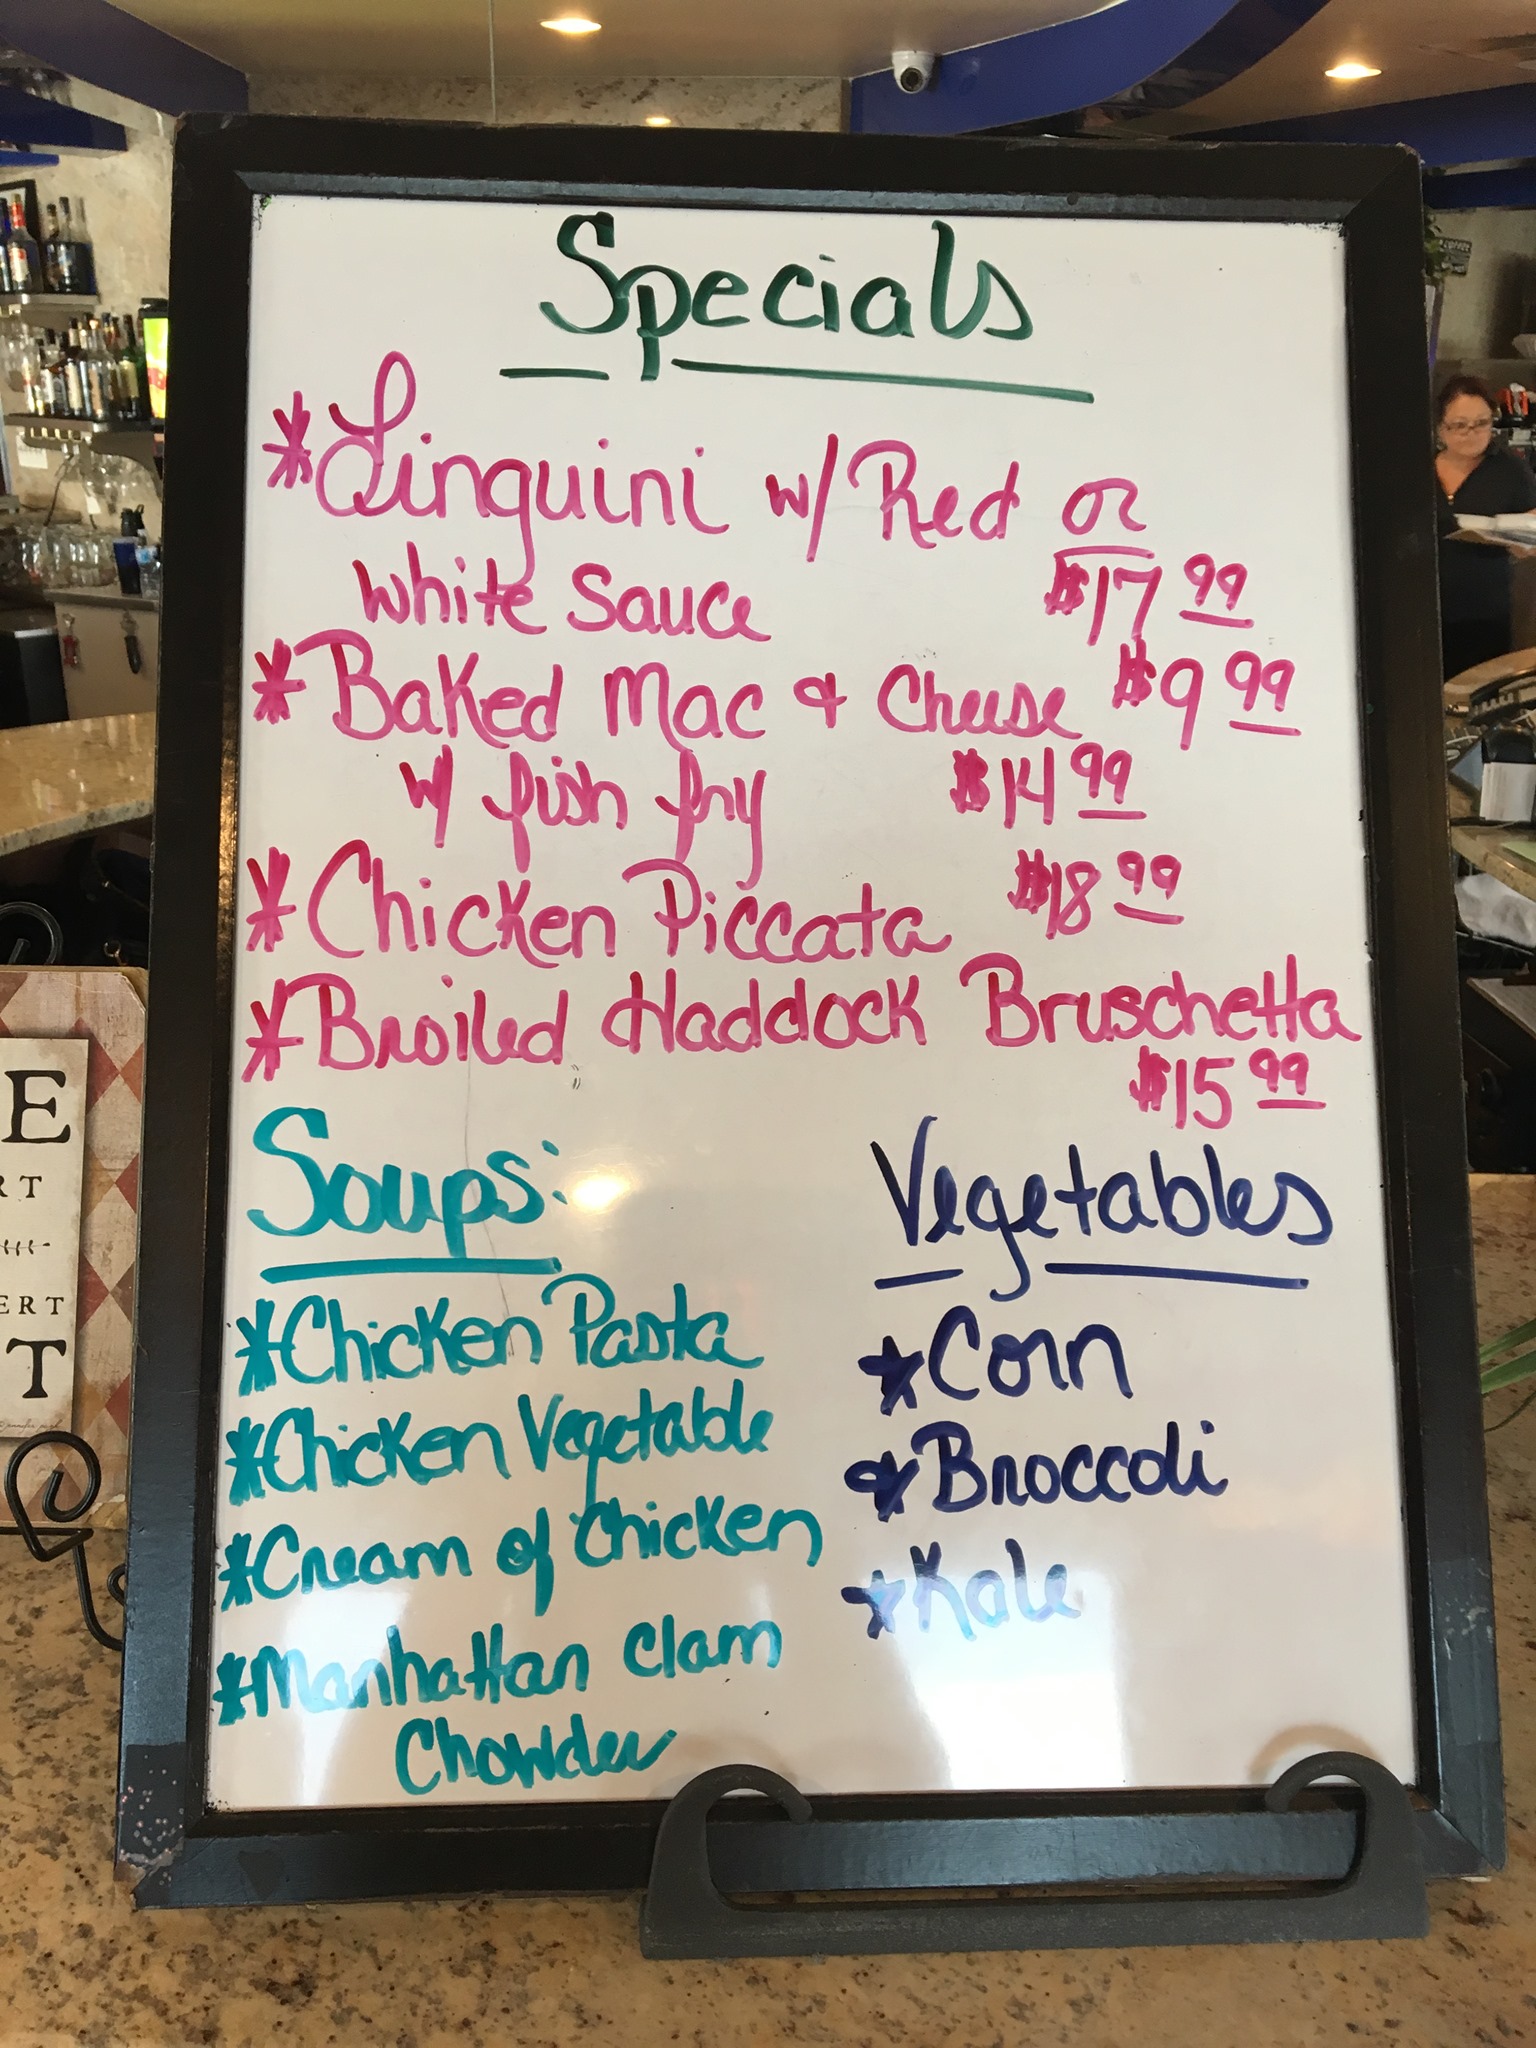 Specials
*Linguini w/ Red or
White Sauce $17 99
*Baked Mac & Cheese $9 99
w/ fish fry $14 99
*Chicken Piccata $18 99
*Broiled Haddock Bruschetta
$15 99
Soups:
*Chicken Pasta
*Chicken Vegetable
*Cream of Chicken
*Manhattan Clam
Chowder
Vegetables
*Corn
*Broccoli
*Kale
E
RT
ERT
T